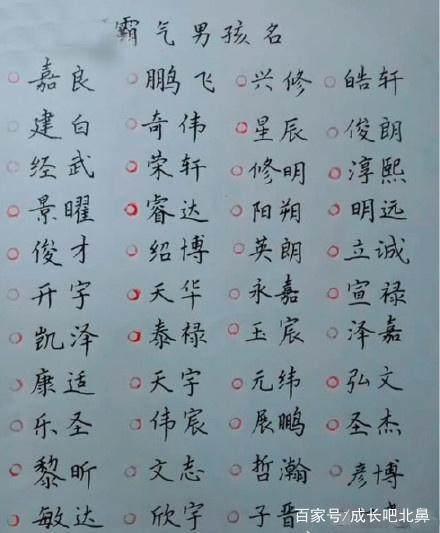 霸气男孩名
嘉良 鹏飞 兴修 皓轩
建白 奇伟 星辰 俊朗
经武 荣轩 修明 淳熙
景曜 睿达 阳朔 明远
俊才 绍博 英朗 立诚
开宇 天华 永嘉 宣禄
凯泽 泰禄 玉宸 泽嘉
康适 天宇 元纬 弘文
乐圣 伟宸 展鹏 圣杰
黎昕 文志 哲瀚 彦博
敏达 欣宇 子晋
百家号/成长吧北鼻